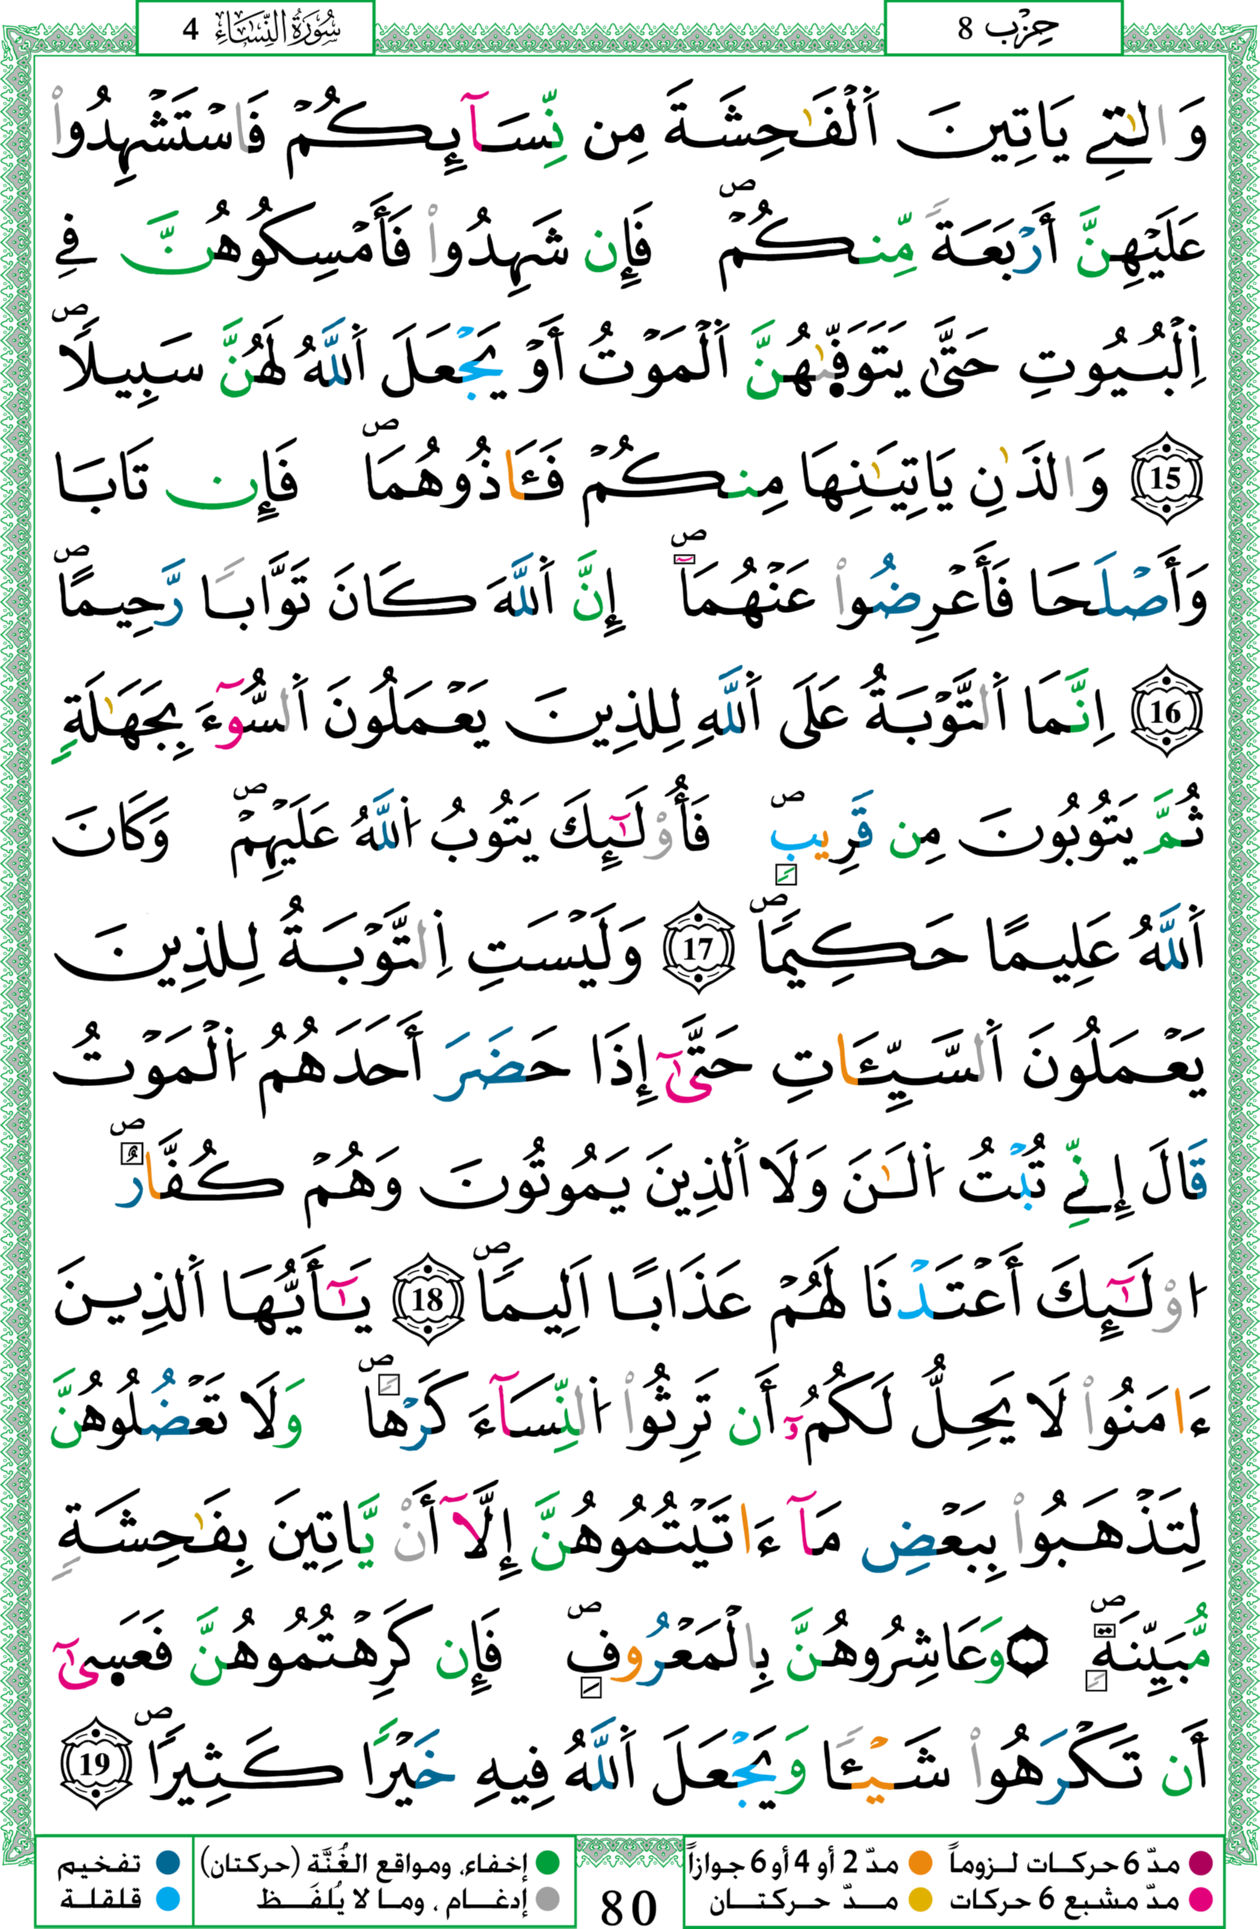 حِزْب 8
سُورَةُ النِّسَاءِ 4
وَالتِے يَاتِينَ اَ۬لْفَٰحِشَةَ مِن نِّسَآئِكُمْ فَاسْتَشْهِدُواْ
عَلَيْهِنَّ أَرْبَعَةٗ مِّنكُمْۖ فَإِن شَهِدُواْ فَأَمْسِكُوهُنَّ فِے
اِ۬لْبُيُوتِ حَتَّىٰ يَتَوَفّ۪ىٰهُنَّ اَ۬لْمَوْتُ أَوْ يَجْعَلَ اَ۬للَّهُ لَهُنَّ سَبِيلاٗۖ
15 وَالذَٰنِ يَاتِيَٰنِهَا مِنكُمْ فَـَٔاذُوهُمَاۖ فَإِن تَابَا
وَأَصْلَحَا فَأَعْرِضُواْ عَنْهُمَآۖ إِنَّ اَ۬للَّهَ كَانَ تَوَّاباٗ رَّحِيماًۖ
16 اِنَّمَا اَ۬لتَّوْبَةُ عَلَى اَ۬للَّهِ لِلذِينَ يَعْمَلُونَ اَ۬لسُّوٓءَ بِجَهَٰلَةٖ
ثُمَّ يَتُوبُونَ مِن قَرِيبٖۖ فَأُوْلَٰٓئِكَ يَتُوبُ اُ۬للَّهُ عَلَيْهِمْۖ وَكَانَ
اَ۬للَّهُ عَلِيماً حَكِيماٗۖ 17 وَلَيْسَتِ اِ۬لتَّوْبَةُ لِلذِينَ
يَعْمَلُونَ اَ۬لسَّيِّـَٔاتِ حَتَّىٰٓ إِذَا حَضَرَ أَحَدَهُمُ اُ۬لْمَوْتُ
قَالَ إِنِّے تُبْتُ اُ۬لَٰنَ وَلَا اَ۬لذِينَ يَمُوتُونَ وَهُمْ كُفَّارٌۖ
ا۟وْلَٰٓئِكَ أَعْتَدْنَا لَهُمْ عَذَاباً اَلِيماٗۖ 18 يَٰٓأَيُّهَا اَ۬لذِينَ
ءَامَنُواْ لَا يَحِلُّ لَكُمُۥٓ أَن تَرِثُواْ اُ۬لنِّسَآءَ كَرْهاٗۖ وَلَا تَعْضُلُوهُنَّ
لِتَذْهَبُواْ بِبَعْضِ مَآ ءَاتَيْتُمُوهُنَّ إِلَّآ أَنْ يَّاتِينَ بِفَٰحِشَةٖ
مُّبَيِّنَةٖۖ ۞ وَعَاشِرُوهُنَّ بِالْمَعْرُوفِۖ فَإِن كَرِهْتُمُوهُنَّ فَعَس۪ىٰٓ
أَن تَكْرَهُواْ شَيْـٔاٗ وَيَجْعَلَ اَ۬للَّهُ فِيهِ خَيْراٗ كَثِيراٗۖ 19
مدّ 6 حركات لـزوماً
مدّ 2 أو 4 أو 6 جوازاً
مدّ مشبع 6 حركات
مدّ حركتـان
80
إخفاء، ومواقع الغُنَّة (حركتان)
إدغام ، وما لا يُلفَـظ
تفخيم
قلقلة